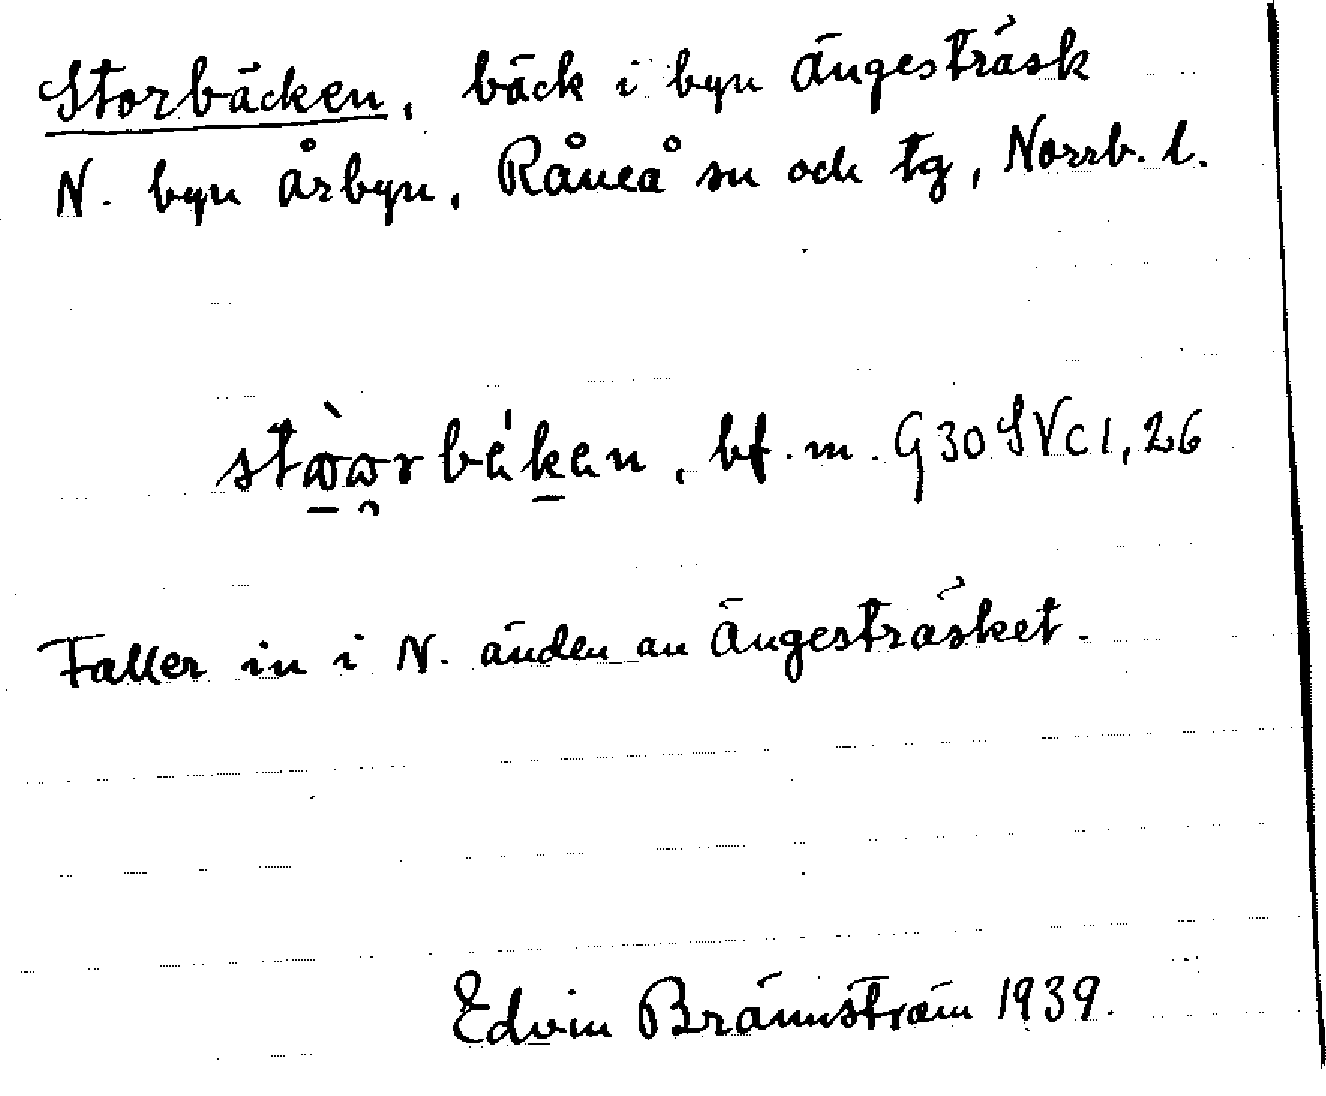 Storbäcken, bäck i byn Ängesträsk
N. byn Årbyn, Råneå sn och tg, Norrb. l.
bf. m. G 30 SV c 1, 26
Faller in i N. änden av Ängesträsket.
Edvin Brännström 1939.